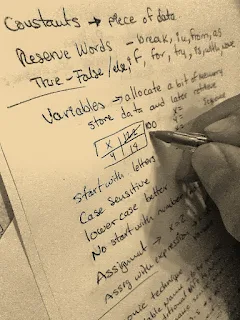 Constants → piece of data
Reserve Words - break, in, from, as
True - False /else, if, for, try, is, with, while
Variables → allocate a bit of memory
store data and later retrieve
x 12.2 100
y 14
Start with letters
Case Sensitive
lower case better
No start with numbers
Assignment → x =
Assig with expression
technique